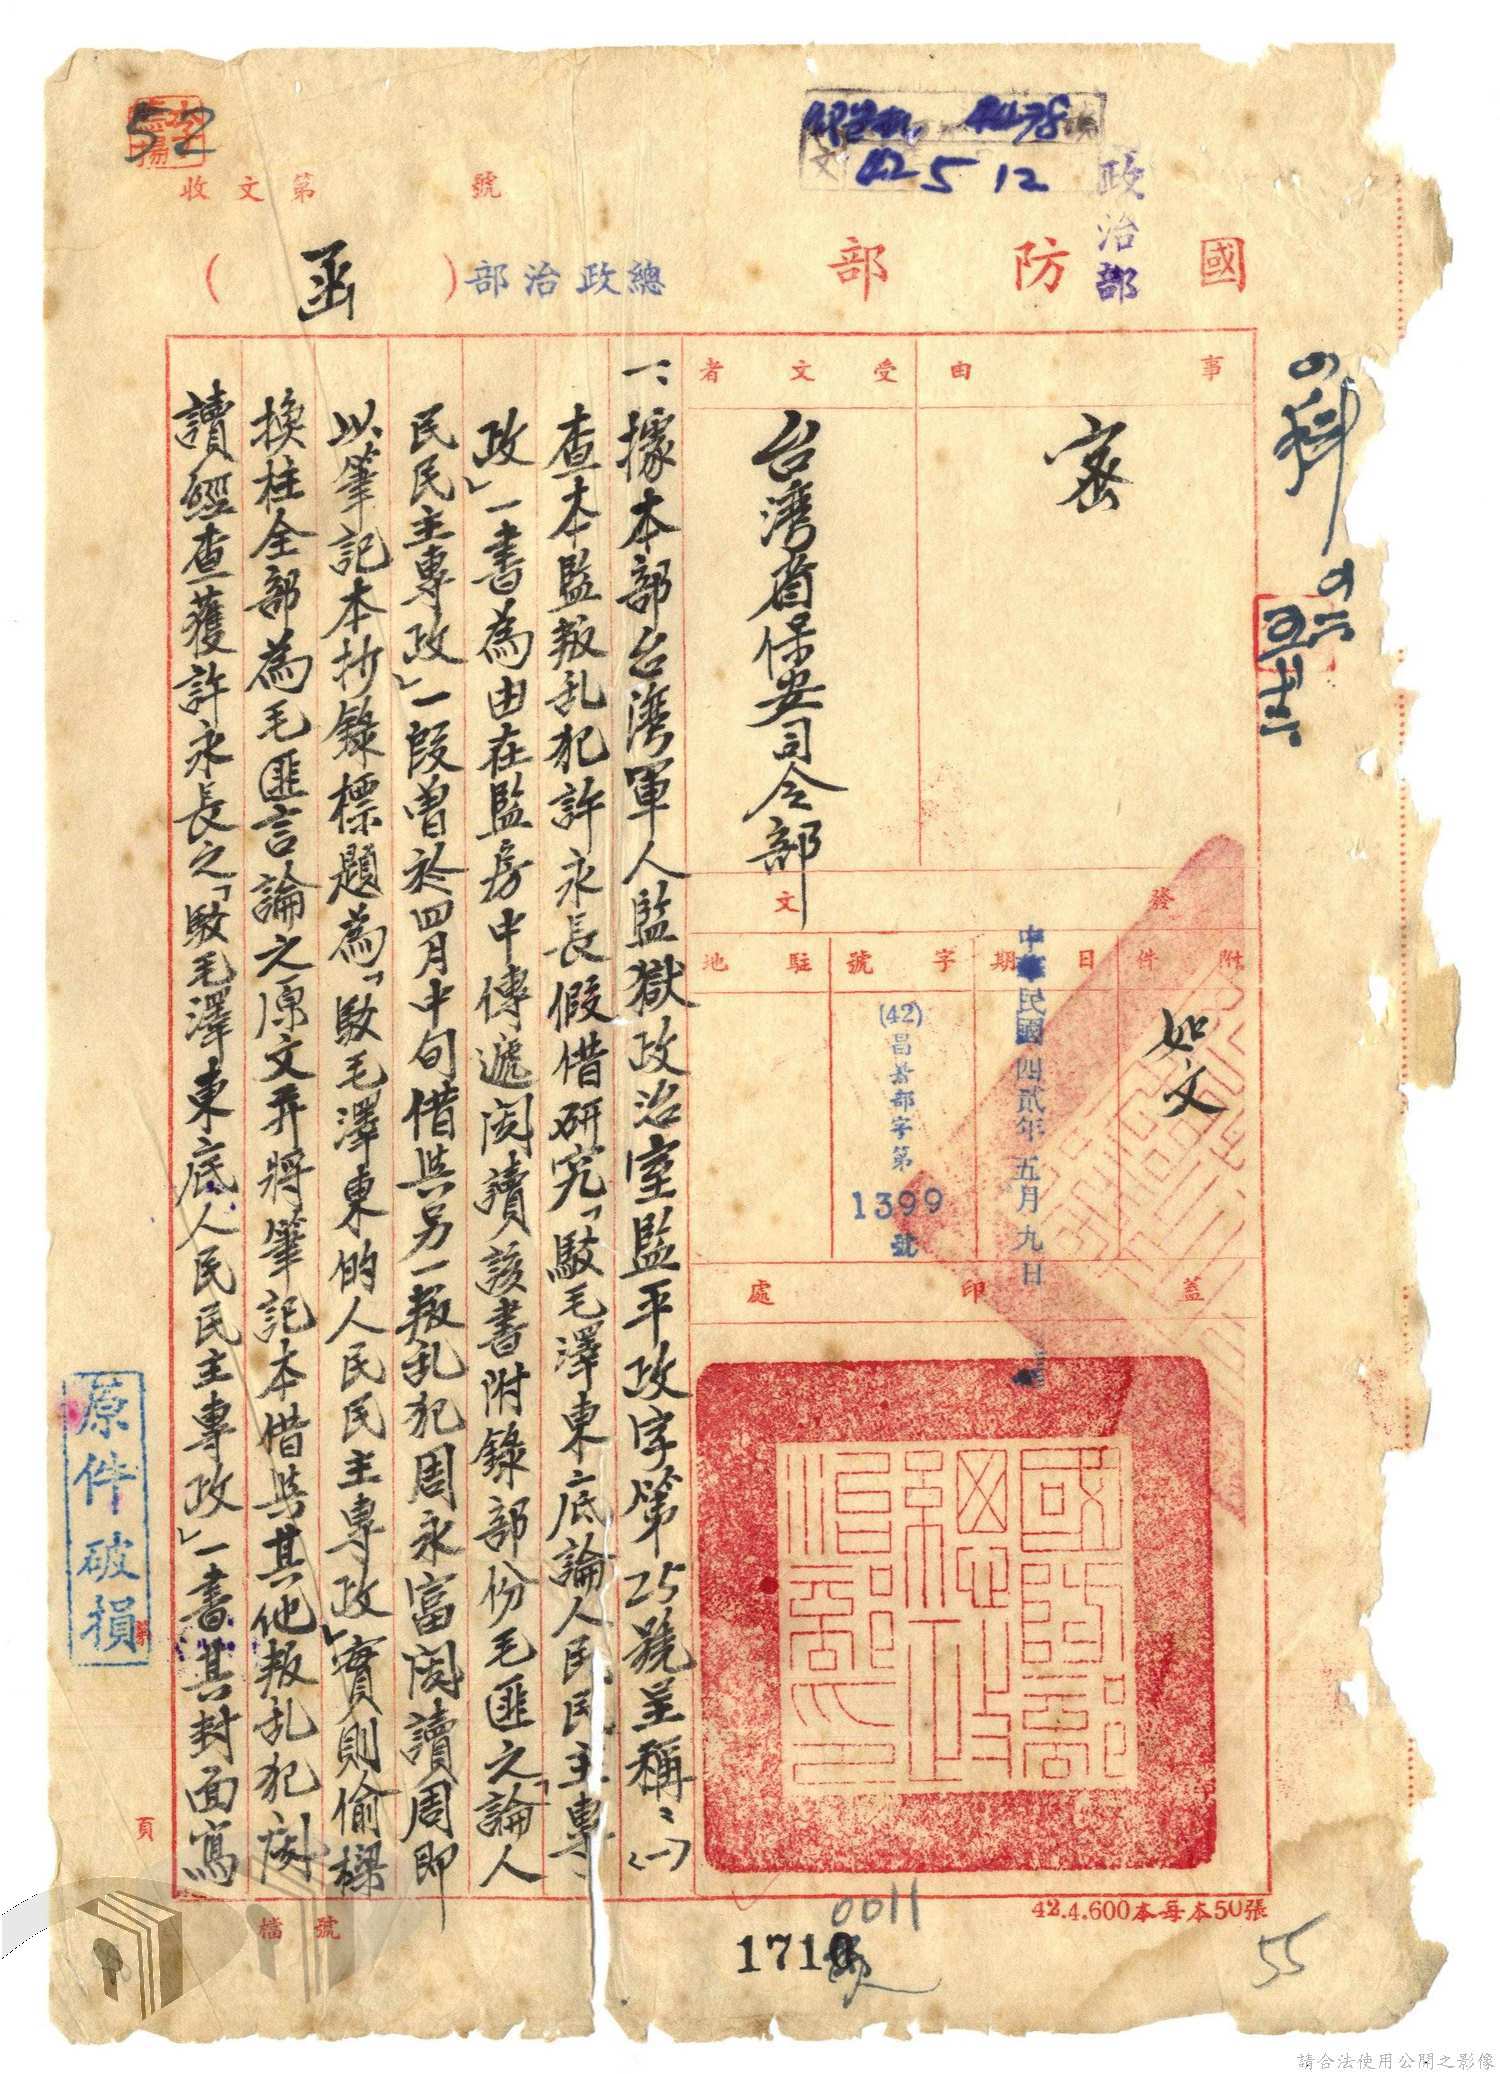 52
收文第 號
42 5 12
政治部
國防部
總政治部
(函)
事由
密
受文者
台灣省保安司令部
發文
附件
如文
日期
中華民國四貳年五月九日
字號
(42)昌
部字第
1399
號
駐地
蓋印處
國防部總政治部印
一、據本部台灣軍人監獄政治室監平政字第25號呈稱：㈠
查本監叛乱犯許永長假借研究「駁毛澤東底論人民民主專
政」一書為由在監房中傳遞閱讀該書附錄部份毛匪之「論人
民民主專政」一段曾於四月中旬借與另一叛乱犯周永富閱讀周即
以筆記本抄錄標題為「駁毛澤東的人民民主專政」實則偷樑
換柱全部為毛匪言論之原文并將筆記本借與其他叛乱犯閱
讀經查獲許永長之「駁毛澤東底人民民主專政」一書其封面寫
原件破損
頁
檔號
42.4.600本每本50張
0011
1710
55
請合法使用公開之影像